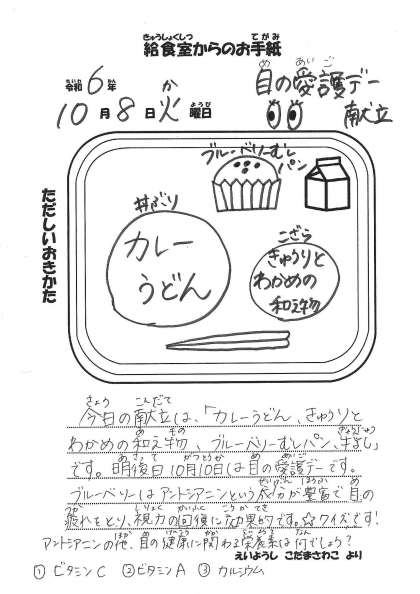 給食室からのお手紙
令和6年
10月8日火曜日
目の愛護デー
献立
ただしいおきかた
ブルーベリーむし
パン
丼ぶり
カレー
うどん
こざら
きゅうりと
わかめの
和え物
今日の献立は、「カレーうどん、きゅうりと
わかめの和え物、ブルーベリーむしパン、牛乳」
です。明後日10月10日は目の愛護デーです。
ブルーベリーはアントシアニンという成分が豊富で目の
疲れをとり、視力の回復に効果的です。☆クイズです!
アントシアニンの他、目の健康に関わる栄養素は何でしょう?
えいようし こだまさわこ より
①ビタミンC ②ビタミンA ③カルシウム